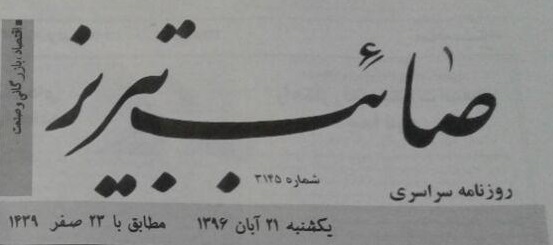 صائب تبریز
اقتصاد، بازرگانی و صنعت
شماره ۳۱۴۵
روزنامه سراسری
یکشنبه ۲۱ آبان ۱۳۹۶ مطابق با ۲۳ صفر ۱۴۳۹